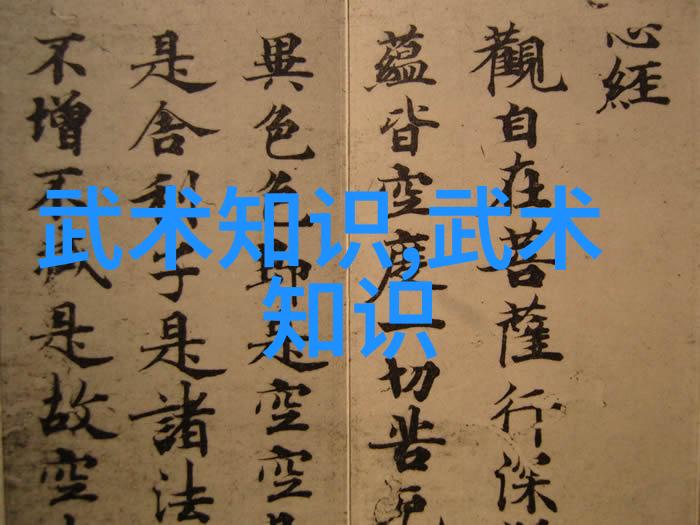 心經
觀自在菩薩行深
蘊皆空度一切苦厄
異色色即是空空
是舍利子是諸法
不增不減是故空
武术知识,武术
知识